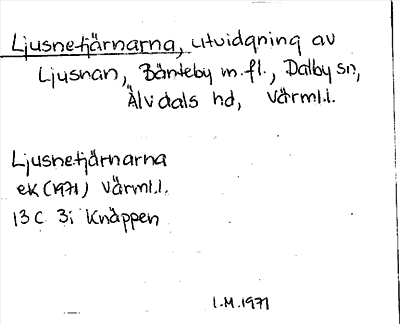 Ljusnetjärnarna, utvidgning av
Ljusnan, Bänteby m.fl., Dalby sn,
Älvdals hd, Värml.l.
Ljusnetjärnarna
ek (1971) Värml.l.
13 C 3i Knäppen
I.M. 1971